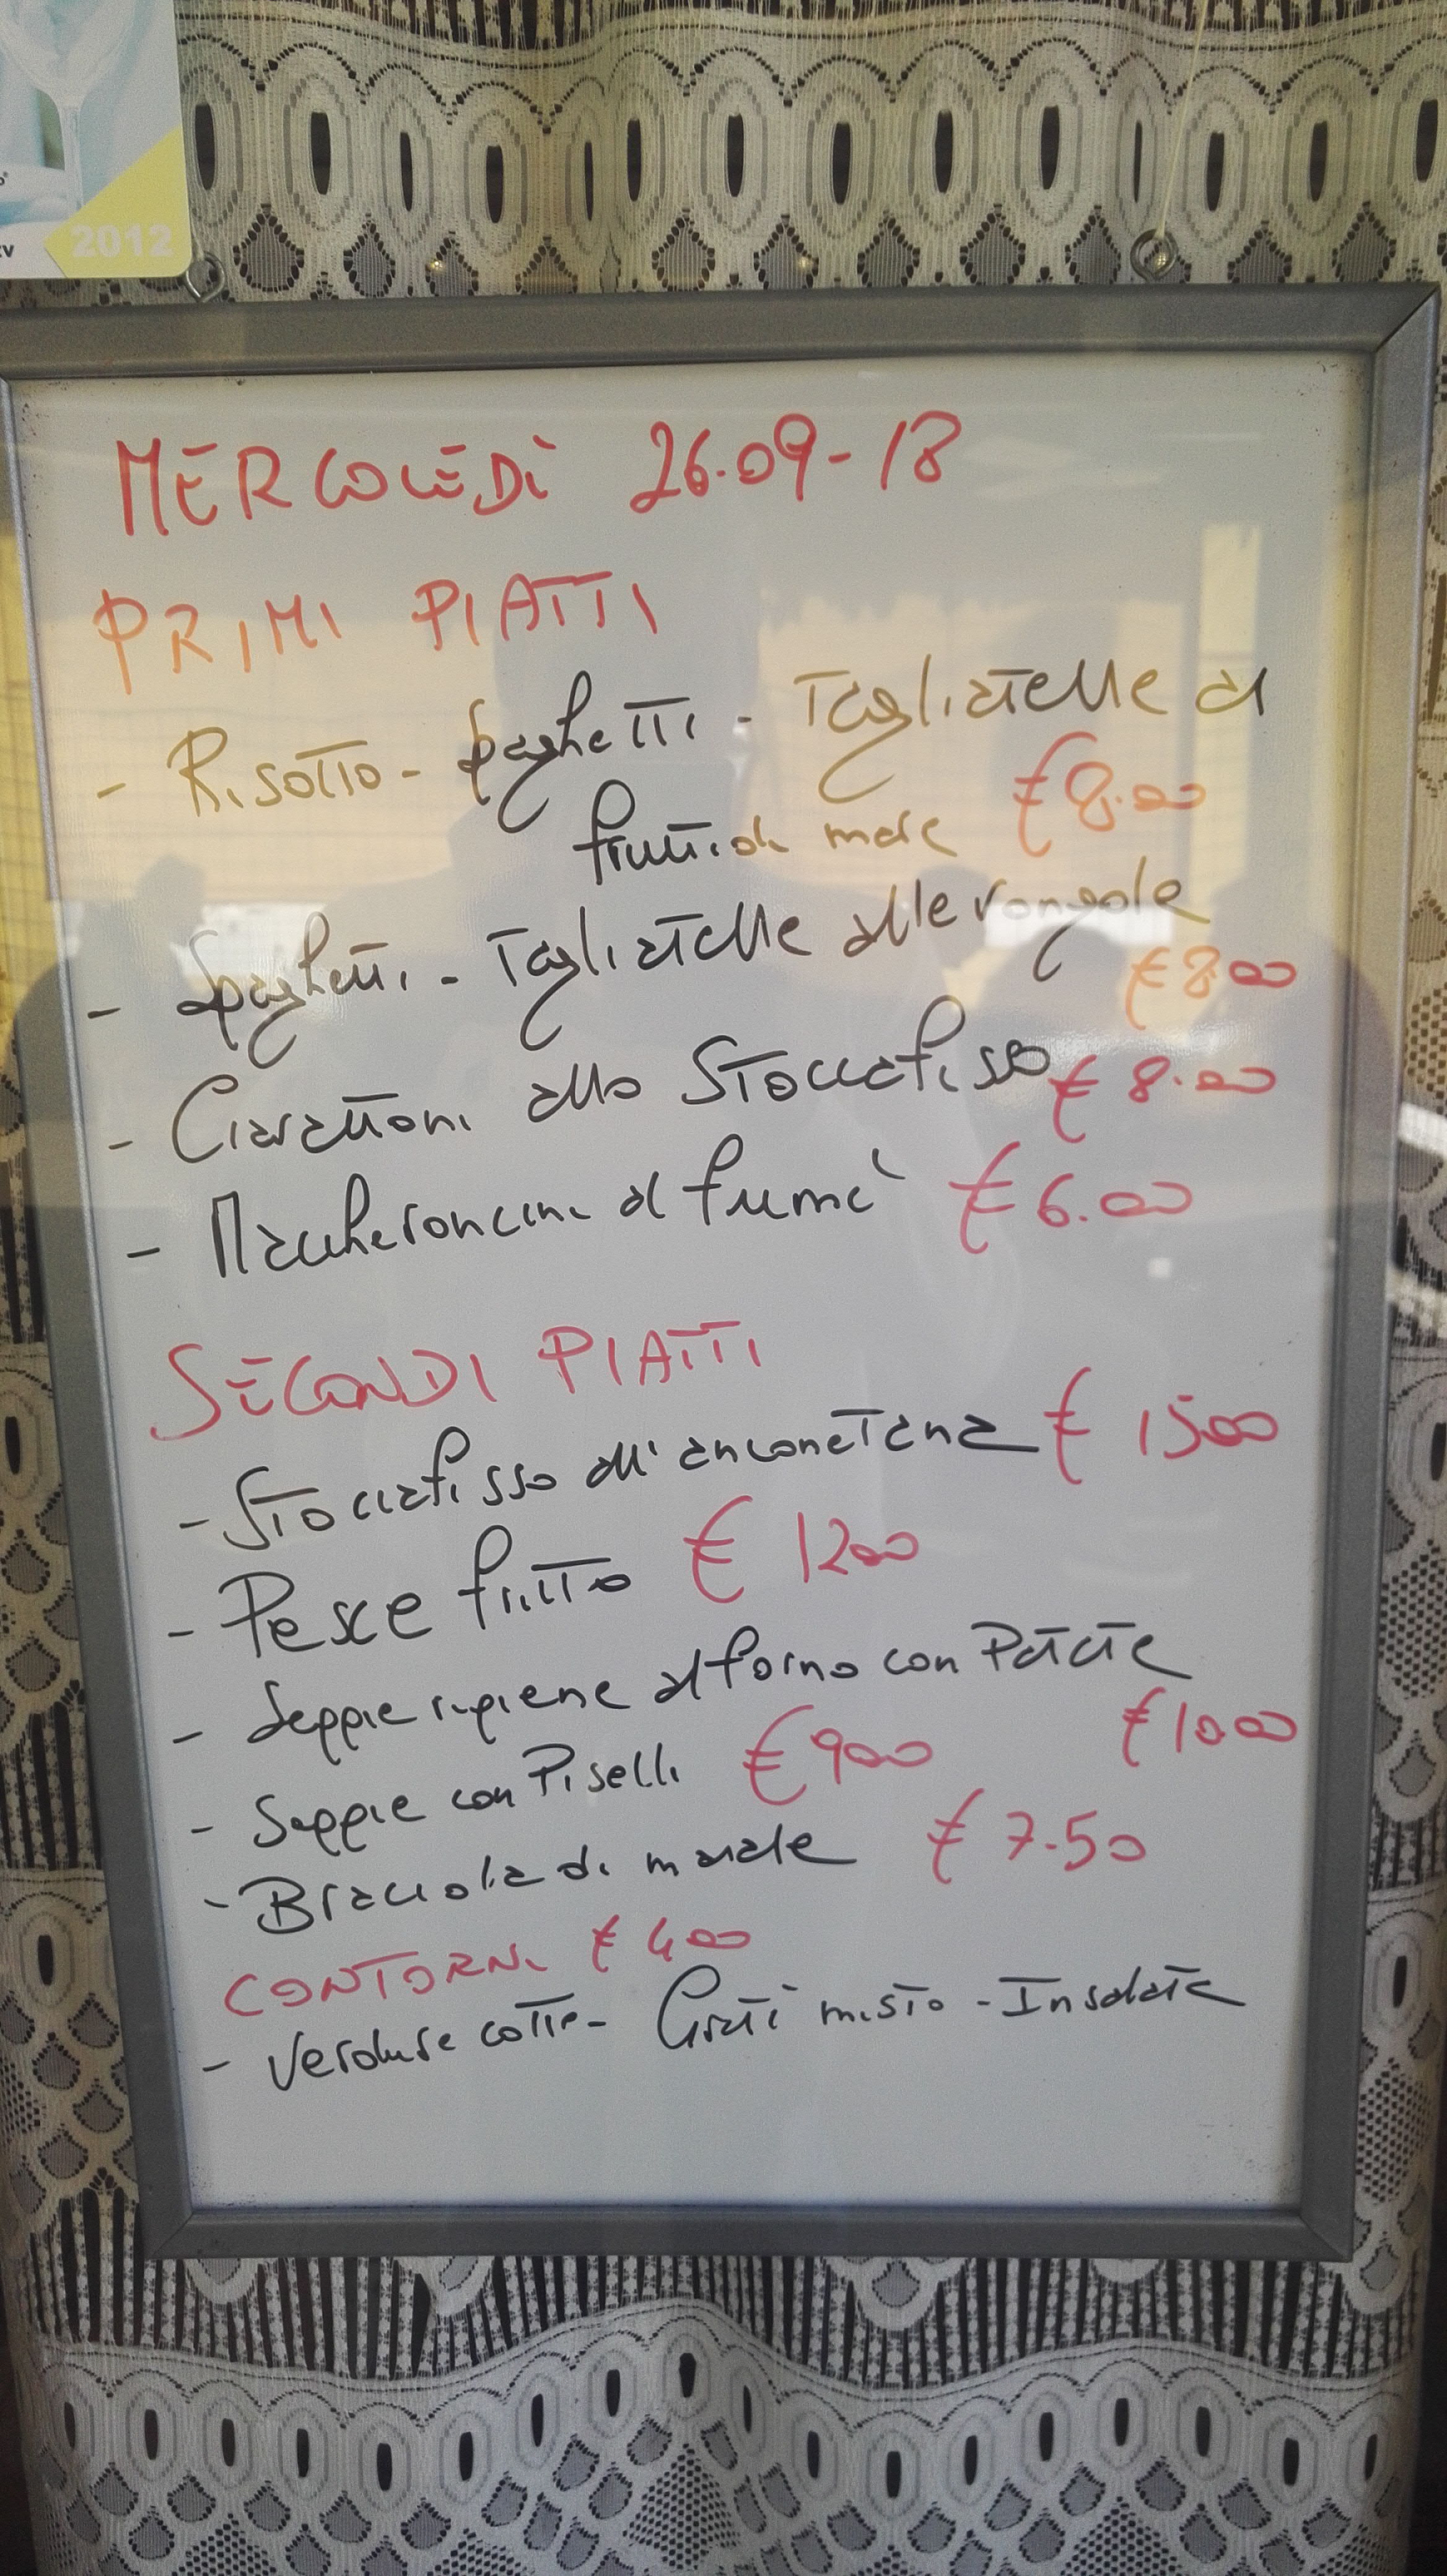 2012
MERCOLEDÌ 26.09-18
PRIMI PIATTI
- Risotto - Spaghetti - Tagliatelle ai
frutti di mare €8.00
- Spaghetti - Tagliatelle alle vongole
€800
- Ciavattoni allo Stoccafisso € 8.00
- Maccheroncini al fumè €6.00
SECONDI PIATTI
- Stoccafisso all'anconetana € 1500
- Pesce fritto € 1200
- Seppie ripiene al forno con Patate
€10.00
- Seppie con Piselli €900
- Braciola di maiale € 7.50
CONTORNI € 400
- Verdure cotte - Grati misto - Insalata